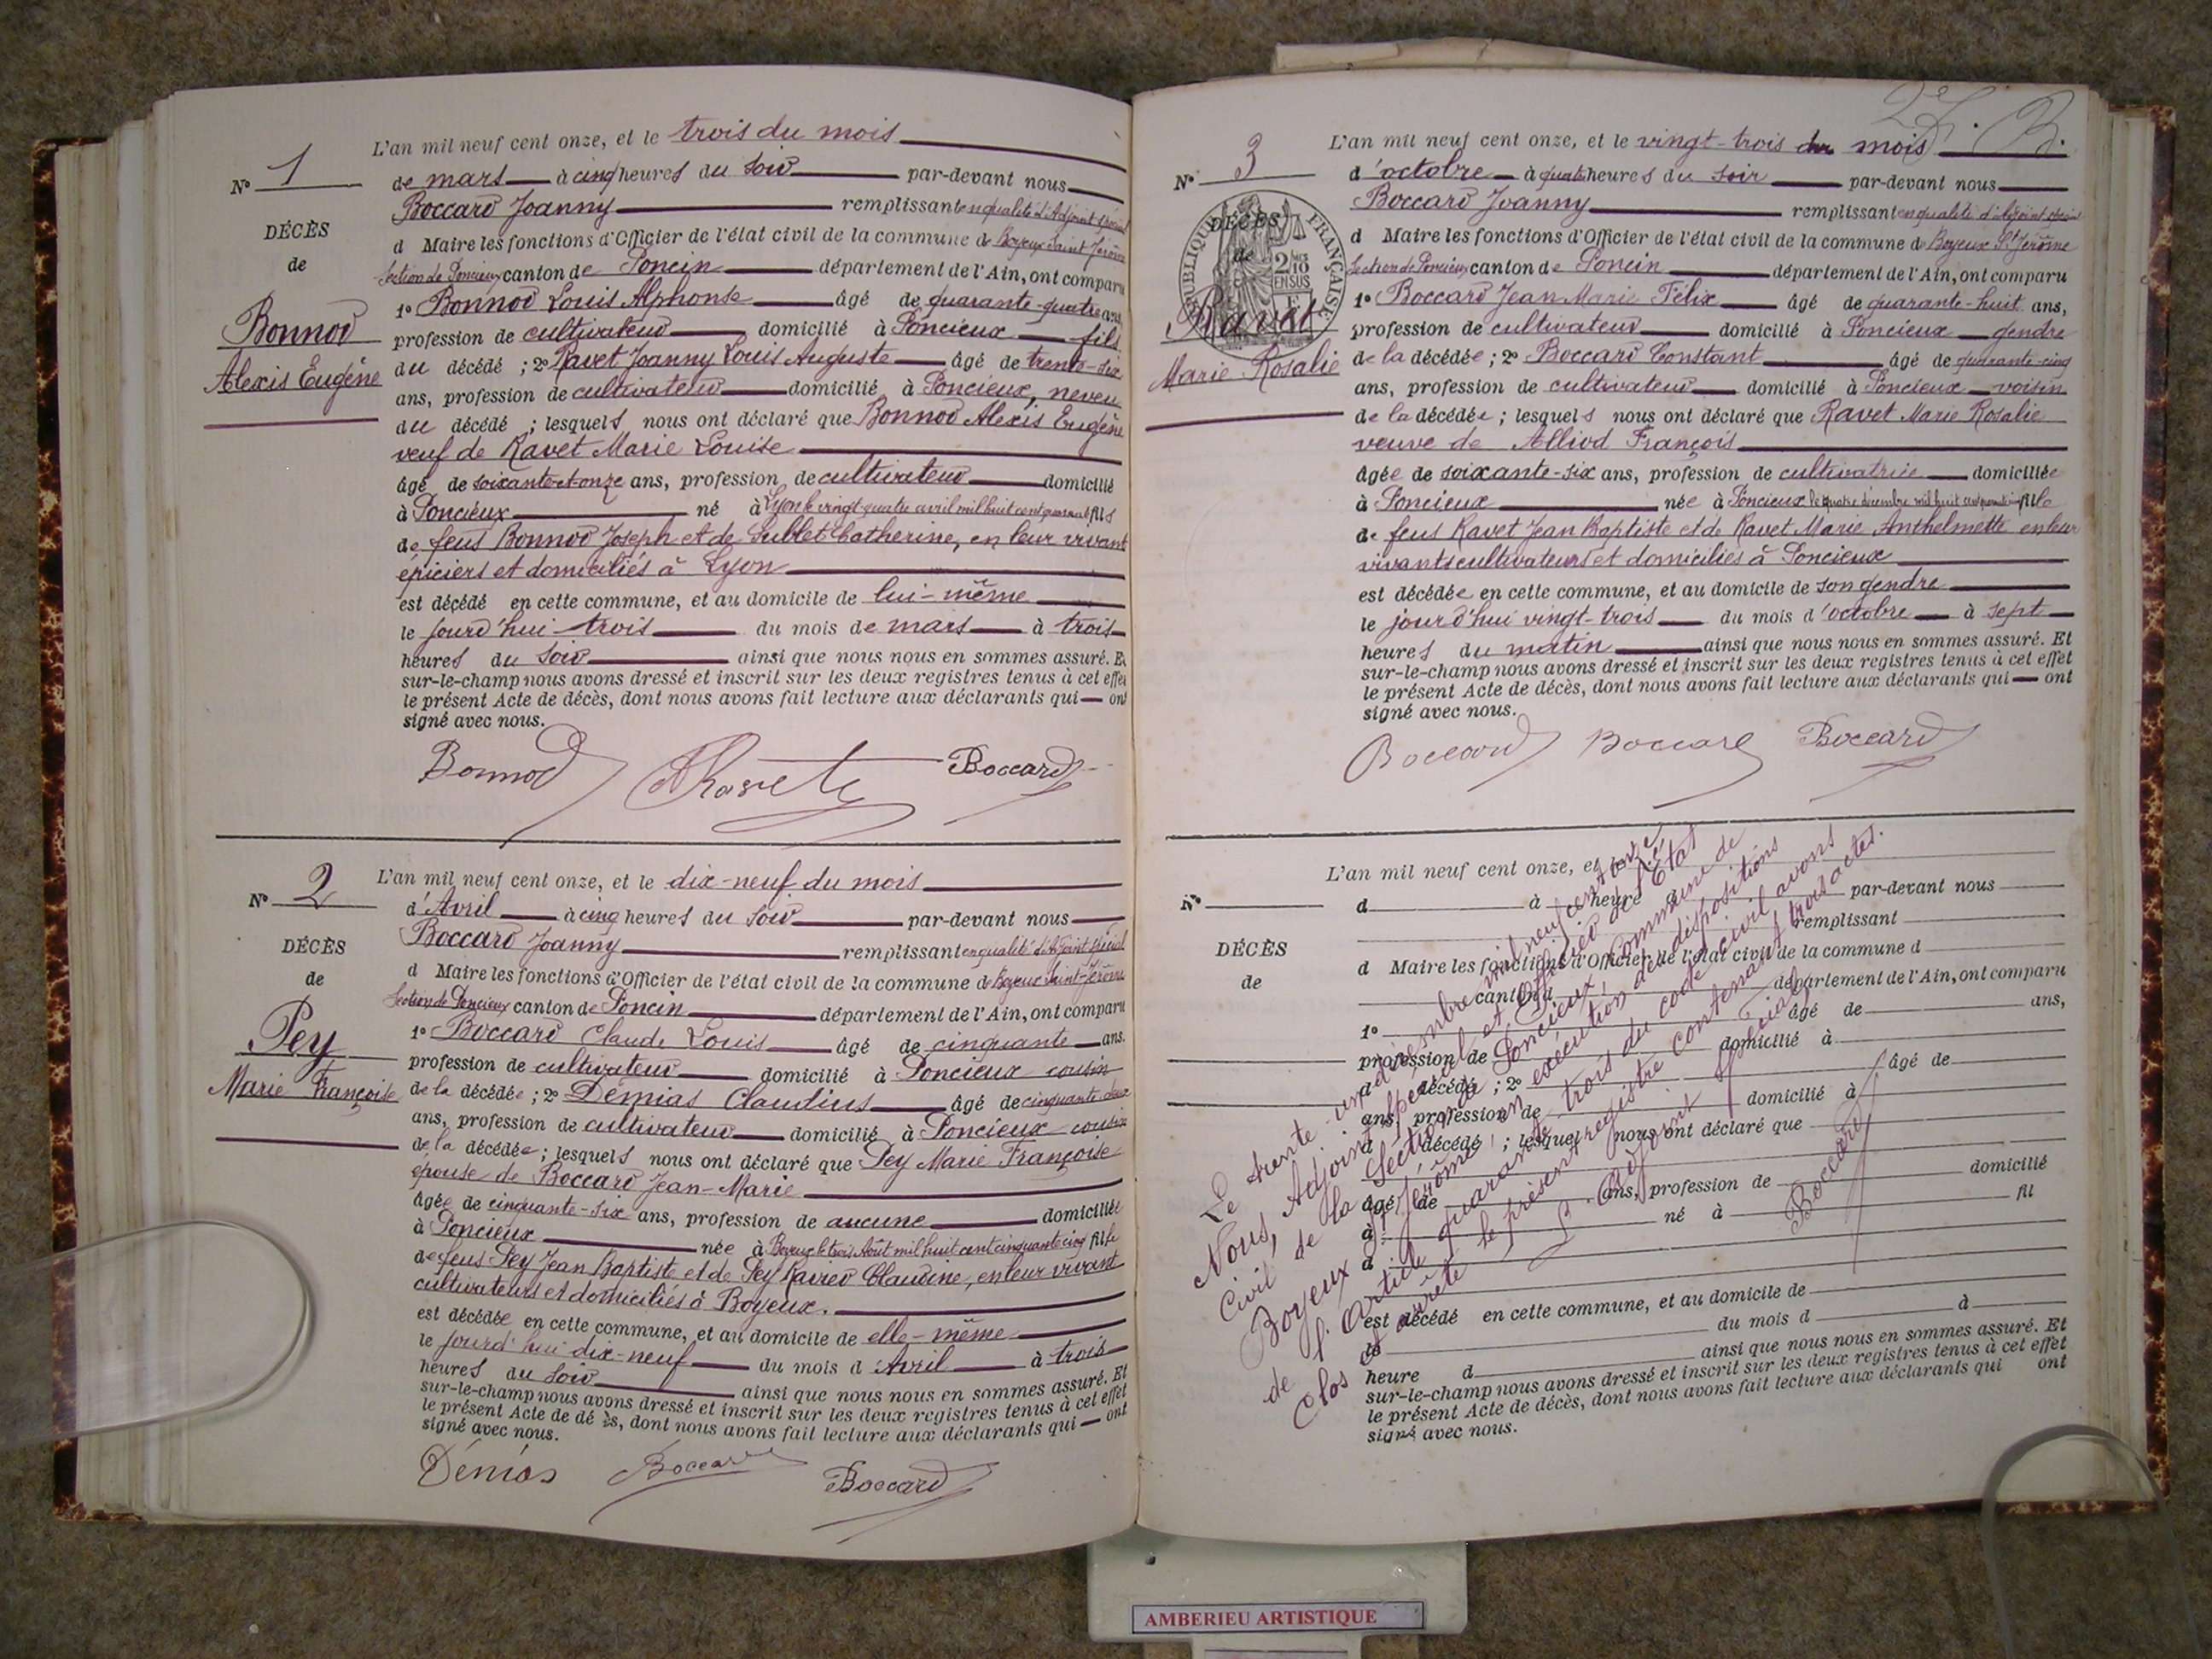 L'an mil neuf cent onze, et le trois du mois
N° 1
de mars à cinq heures du soir par-devant nous
Boccard Joanny remplissant en qualité d'Adjoint spécial
DÉCÈS
d Maire les fonctions d'Officier de l'état civil de la commune de Boyeux Saint-Jérôme
de
Section de Poncieux canton de Poncin département de l'Ain, ont comparu
1° Bonnod Louis Alphonse âgé de quarante-quatre ans,
Bonnod
profession de cultivateur domicilié à Poncieux fils
Alexis Eugène
du décédé ; 2° Ravet Joanny Louis Auguste âgé de trente-six
ans, profession de cultivateur domicilié à Poncieux, neveu
du décédé ; lesquels nous ont déclaré que Bonnod Alexis Eugène
veuf de Ravet Marie Louise
âgé de soixante-et-onze ans, profession de cultivateur domicilié
à Poncieux né à Lyon le vingt-quatre avril mil huit cent quarante fils
de feus Bonnod Joseph et de Sublet Catherine, en leur vivant
épiciers et domiciliés à Lyon
est décédé en cette commune, et au domicile de lui-même
le jourd'hui trois du mois de mars à trois
heures du soir ainsi que nous nous en sommes assuré. Et
sur-le-champ nous avons dressé et inscrit sur les deux registres tenus à cet effet
le présent Acte de décès, dont nous avons fait lecture aux déclarants qui ont
signé avec nous.
Bonnod Boccard
L'an mil neuf cent onze, et le dix-neuf du mois
N° 2
d'Avril à cinq heures du soir par-devant nous
Boccard Joanny remplissant en qualité d'Adjoint spécial
DÉCÈS
d Maire les fonctions d'Officier de l'état civil de la commune de Boyeux Saint-Jérôme
de
Section de Poncieux canton de Poncin département de l'Ain, ont comparu
1° Boccard Claude Louis âgé de cinquante ans.
Pey
profession de cultivateur domicilié à Poncieux cousin
Marie Françoise
de la décédée ; 2° Démias Claudius âgé de cinquante-deux
ans, profession de cultivateur domicilié à Poncieux cousin
de la décédée ; lesquels nous ont déclaré que Pey Marie Françoise
épouse de Boccard Jean-Marie
âgée de cinquante-six ans, profession de aucune domiciliée
à Poncieux née à Boyeux le trois Août mil huit cent cinquante cinq fille
de feus Pey Jean Baptiste et de Pey Ravier Claudine, en leur vivant
cultivateurs et domiciliés à Boyeux.
est décédée en cette commune, et au domicile de elle-même
le jourd'hui dix-neuf du mois d'Avril à trois
heures du soir ainsi que nous nous en sommes assuré. Et
sur-le-champ nous avons dressé et inscrit sur les deux registres tenus à cet effet
le présent Acte de dé ès, dont nous avons fait lecture aux déclarants qui ont
signé avec nous.
Démias Boccard Boccard
L'an mil neuf cent onze, et le vingt-trois du mois
N° 3
d'octobre à quatre heures du soir par-devant nous
Boccard Joanny remplissant en qualité d'Adjoint spécial
DÉCÈS
d Maire les fonctions d'Officier de l'état civil de la commune de Boyeux St Jérôme
de
RÉPUBLIQUE FRANÇAISE
2/10 EN SUS
Section de Poncieux canton de Poncin département de l'Ain, ont comparu
1° Boccard Jean Marie Félix âgé de quarante-huit ans,
Ravet
profession de cultivateur domicilié à Poncieux gendre
Marie Rosalie
de la décédée ; 2° Boccard Constant âgé de quarante-cinq
ans, profession de cultivateur domicilié à Poncieux voisin
de la décédée ; lesquels nous ont déclaré que Ravet Marie Rosalie
veuve de Alliod François
âgée de soixante-six ans, profession de cultivatrice domiciliée
à Poncieux née à Poncieux le quatre décembre mil huit cent fille
de feus Ravet Jean Baptiste et de Ravet Marie Anthelmette en leur
vivants cultivateurs et domiciliés à Poncieux
est décédée en cette commune, et au domicile de son gendre
le jourd'hui vingt-trois du mois d'octobre à sept
heures du matin ainsi que nous nous en sommes assuré. Et
sur-le-champ nous avons dressé et inscrit sur les deux registres tenus à cet effet
le présent Acte de décès, dont nous avons fait lecture aux déclarants qui ont
signé avec nous.
Boccard Boccard Boccard
L'an mil neuf cent onze, et
N°
d à heure d par-devant nous
remplissant
DÉCÈS
d Maire les fonctions d'Officier de l'état civil de la commune d
de
canton d département de l'Ain, ont comparu
1° âgé de ans,
profession de domicilié à
d décédé ; 2° âgé de
ans, profession de domicilié à
d décédé ; lesquel nous ont déclaré que
âgé de ans, profession de domicilié
à né à fil
d
est décédé en cette commune, et au domicile de
le du mois d à
heure d ainsi que nous nous en sommes assuré. Et
sur-le-champ nous avons dressé et inscrit sur les deux registres tenus à cet effet
le présent Acte de décès, dont nous avons fait lecture aux déclarants qui ont
signé avec nous.
Le trente-un décembre mil neuf cent onze
Nous, Adjoint spécial et Officier de l'État
Civil de la Section de Poncieux, Commune de
Boyeux St Jérôme, en exécution des dispositions
de l'article quarante-trois du code civil avons
clos et arrêté le présent registre contenant trois actes.
L'Adjoint Spécial,
Boccard
AMBERIEU ARTISTIQUE